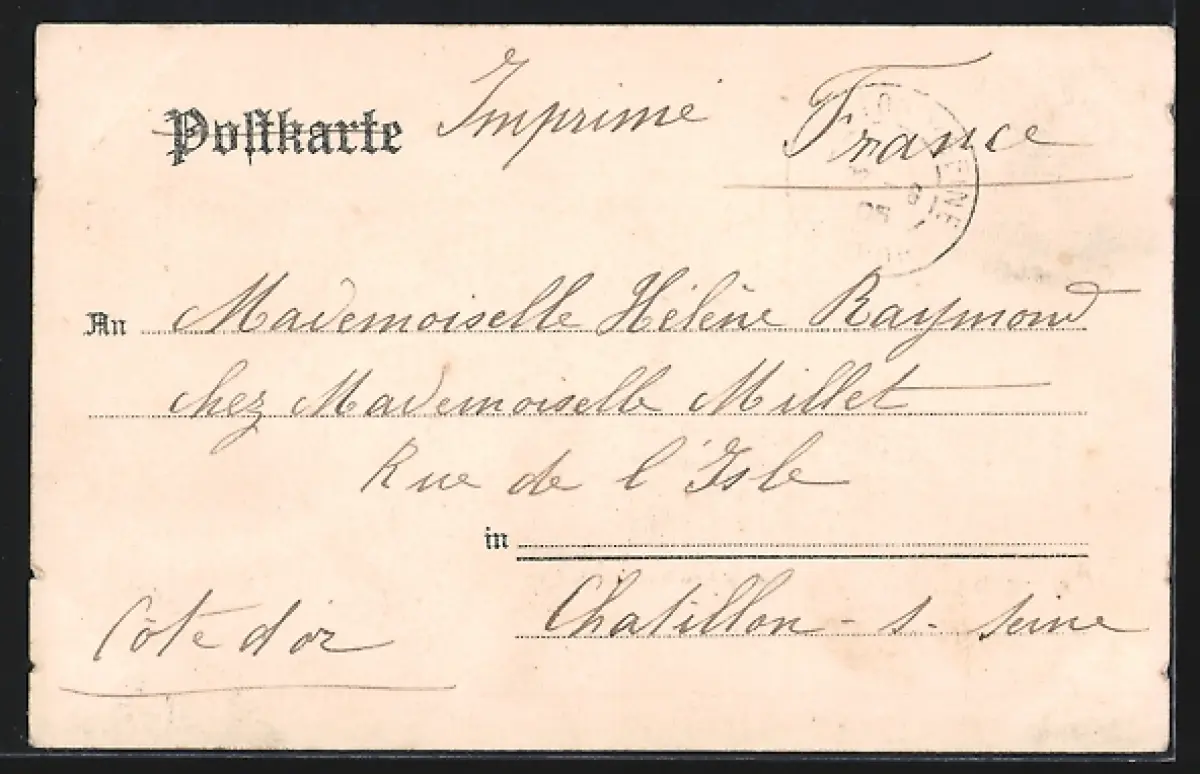 Postkarte Imprimé France
An Mademoiselle Hélène Raymond
chez Mademoiselle Millet
Rue de l'Isle
in
Chatillon - s - Seine
Côte d'or